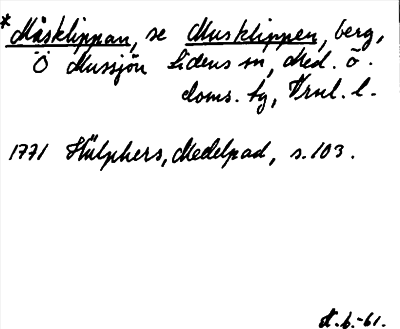 *Måsklippan, se Musklippen, berg,
Ö Mussjön Lidens sn, Med. ö.
doms. tg, Vrnl. l.
1771 Hülphers, Medelpad, s. 103.
N. b. -61.